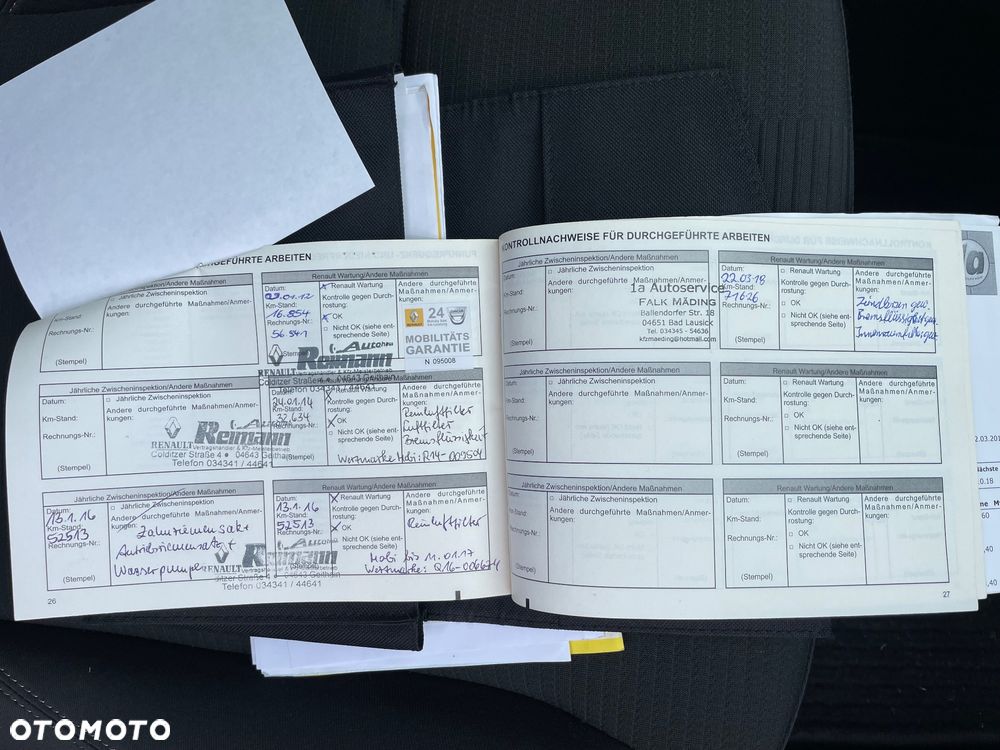 GEFÜHRTE ARBEITEN
Renault Wartung/Andere Maßnahmen
Datum:
Km-Stand:
16.854
Rechnungs-Nr.:
56.541
(Stempel)
x Renault Wartung
Kontrolle gegen Durchrostung:
x OK
Nicht OK (siehe entsprechende Seite)
Andere durchgeführte Maßnahmen/Anmerkungen:
24
MOBILITÄTS
GARANTIE
N 095008
RENAULT
Autohaus
Reimann
Datum:
Km-Stand:
Rechnungs-Nr.:
(Stempel)
Jährliche Zwischeninspektion/Andere Maßnahmen
Datum:
Km-Stand:
Rechnungs-Nr.:
(Stempel)
□ Jährliche Zwischeninspektion
Andere durchgeführte Maßnahmen/Anmerkungen:
RENAULT
Reimann
Vertragshändler & Kfz-Meisterbetrieb
Colditzer Straße 4 ● 04643 Geithain
Telefon 034341 / 44641
24.01.14
32.634
Renault Wartung
Kontrolle gegen Durchrostung:
x OK
□ Nicht OK (siehe entsprechende Seite)
Andere durchgeführte Maßnahmen/Anmerkungen:
Reinluftfilter
Luftfilter
Bremsflüssigkeit
Wertmarke Mobi: R14-009504
Jährliche Zwischeninspektion/Andere Maßnahmen
Datum:
13.1.16
Km-Stand:
52513
Rechnungs-Nr.:
(Stempel)
□ Jährliche Zwischeninspektion
Andere durchgeführte Maßnahmen/Anmerkungen:
Zahnriemensatz
+
Wasserpumpe
RENAULT
Reimann
Colditzer Straße 4 04643 Geithain
Telefon 034341 / 44641
Renault Wartung/Andere Maßnahmen
Datum:
13.1.16
Km-Stand:
52513
Rechnungs-Nr.:
x Renault Wartung
Kontrolle gegen Durchrostung:
x OK
□ Nicht OK (siehe entsprechende Seite)
Andere durchgeführte Maßnahmen/Anmerkungen:
Reinluftfilter
Mobi bis 11.01.17
Wertmarke: Q16-006674
26
KONTROLLNACHWEISE FÜR DURCHGEFÜHRTE ARBEITEN
Jährliche Zwischeninspektion/Andere Maßnahmen
Datum:
Km-Stand:
Rechnungs-Nr.:
(Stempel)
□ Jährliche Zwischeninspektion
Andere durchgeführte Maßnahmen/Anmerkungen:
1a Autoservice
FALK MÄDING
Ballendorfer Str. 18
04651 Bad Lausick
Tel. 034345 - 54636
kfzmaeding@hotmail.com
Renault Wartung/Andere Maßnahmen
Datum:
22.03.18
Km-Stand:
71626
Rechnungs-Nr.:
(Stempel)
□ Renault Wartung
Kontrolle gegen Durchrostung:
□ OK
□ Nicht OK (siehe entsprechende Seite)
Andere durchgeführte Maßnahmen/Anmerkungen:
Jährliche Zwischeninspektion/Andere Maßnahmen
Datum:
Km-Stand:
Rechnungs-Nr.:
(Stempel)
□ Jährliche Zwischeninspektion
Andere durchgeführte Maßnahmen/Anmerkungen:
Renault Wartung/Andere Maßnahmen
Datum:
Km-Stand:
Rechnungs-Nr.:
(Stempel)
□ Renault Wartung
Kontrolle gegen Durchrostung:
□ OK
□ Nicht OK (siehe entsprechende Seite)
Andere durchgeführte Maßnahmen/Anmerkungen:
Jährliche Zwischeninspektion/Andere Maßnahmen
Datum:
Km-Stand:
Rechnungs-Nr.:
(Stempel)
□ Jährliche Zwischeninspektion
Andere durchgeführte Maßnahmen/Anmerkungen:
Renault Wartung/Andere Maßnahmen
Datum:
Km-Stand:
Rechnungs-Nr.:
(Stempel)
□ Renault Wartung
Kontrolle gegen Durchrostung:
□ OK
□ Nicht OK (siehe entsprechende Seite)
Andere durchgeführte Maßnahmen/Anmerkungen:
27
OTOMOTO